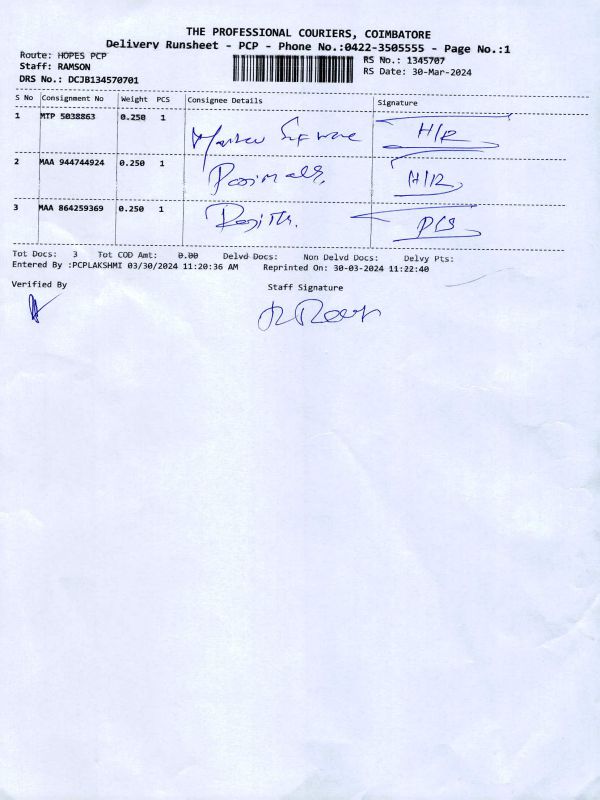 THE PROFESSIONAL COURIERS, COIMBATORE
Delivery Runsheet - PCP - Phone No.:0422-3505555 - Page No.:1
Route: HOPES PCP
RS No.: 1345707
Staff: RAMSON
RS Date: 30-Mar-2024
DRS No.: DCJB134570701
S No Consignment No Weight PCS Consignee Details Signature
1 MTP 5038863 0.250 1 H/R
2 MAA 944744924 0.250 1 H/R
3 MAA 864259369 0.250 1 PCS
Tot Docs: 3 Tot COD Amt: 0.00 Delvd Docs: Non Delvd Docs: Delvy Pts:
Entered By :PCPLAKSHMI 03/30/2024 11:20:36 AM Reprinted On: 30-03-2024 11:22:40
Verified By Staff Signature